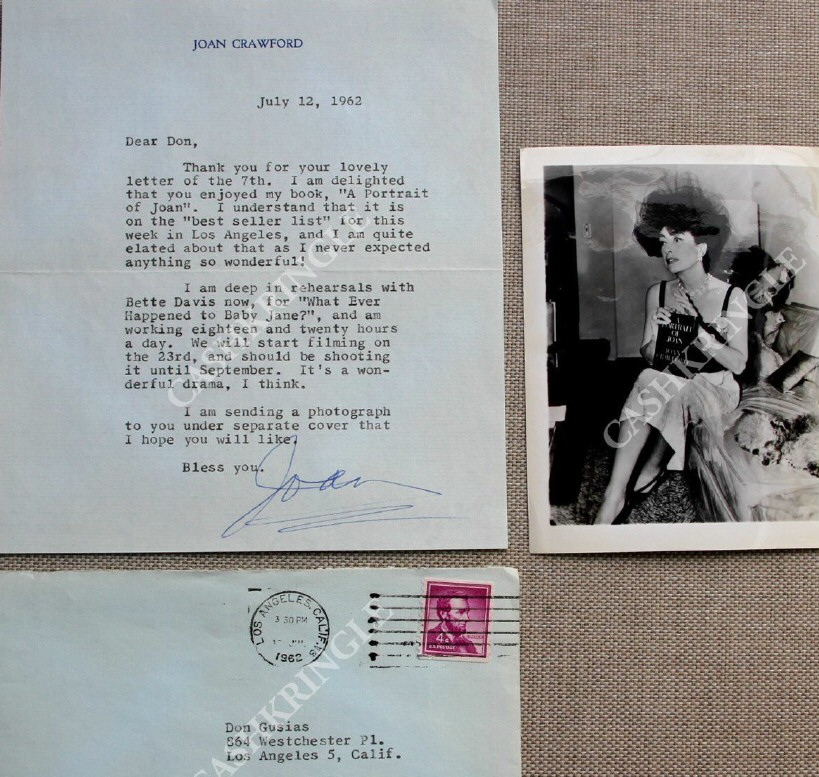 JOAN CRAWFORD
July 12, 1962
Dear Don,
Thank you for your lovely
letter of the 7th. I am delighted
that you enjoyed my book, "A Portrait
of Joan". I understand that it is
on the "best seller list" for this
week in Los Angeles, and I am quite
elated about that as I never expected
anything so wonderful!
I am deep in rehearsals with
Bette Davis now, for "What Ever
Happened to Baby Jane?", and am
working eighteen and twenty hours
a day. We will start filming on
the 23rd, and should be shooting
it until September. It's a won-
derful drama, I think.
I am sending a photograph
to you under separate cover that
I hope you will like.
Bless you.
Joan
A
PORTRAIT
OF
JOAN
JOAN
CRAWFORD
LOS ANGELES, CALIF.
3 30 PM
1962
4¢
U.S. POSTAGE
Don Gusias
864 Westchester Pl.
Los Angeles 5, Calif.
CASHKRINGLE
CASHKRINGLE
CASHKRINGLE